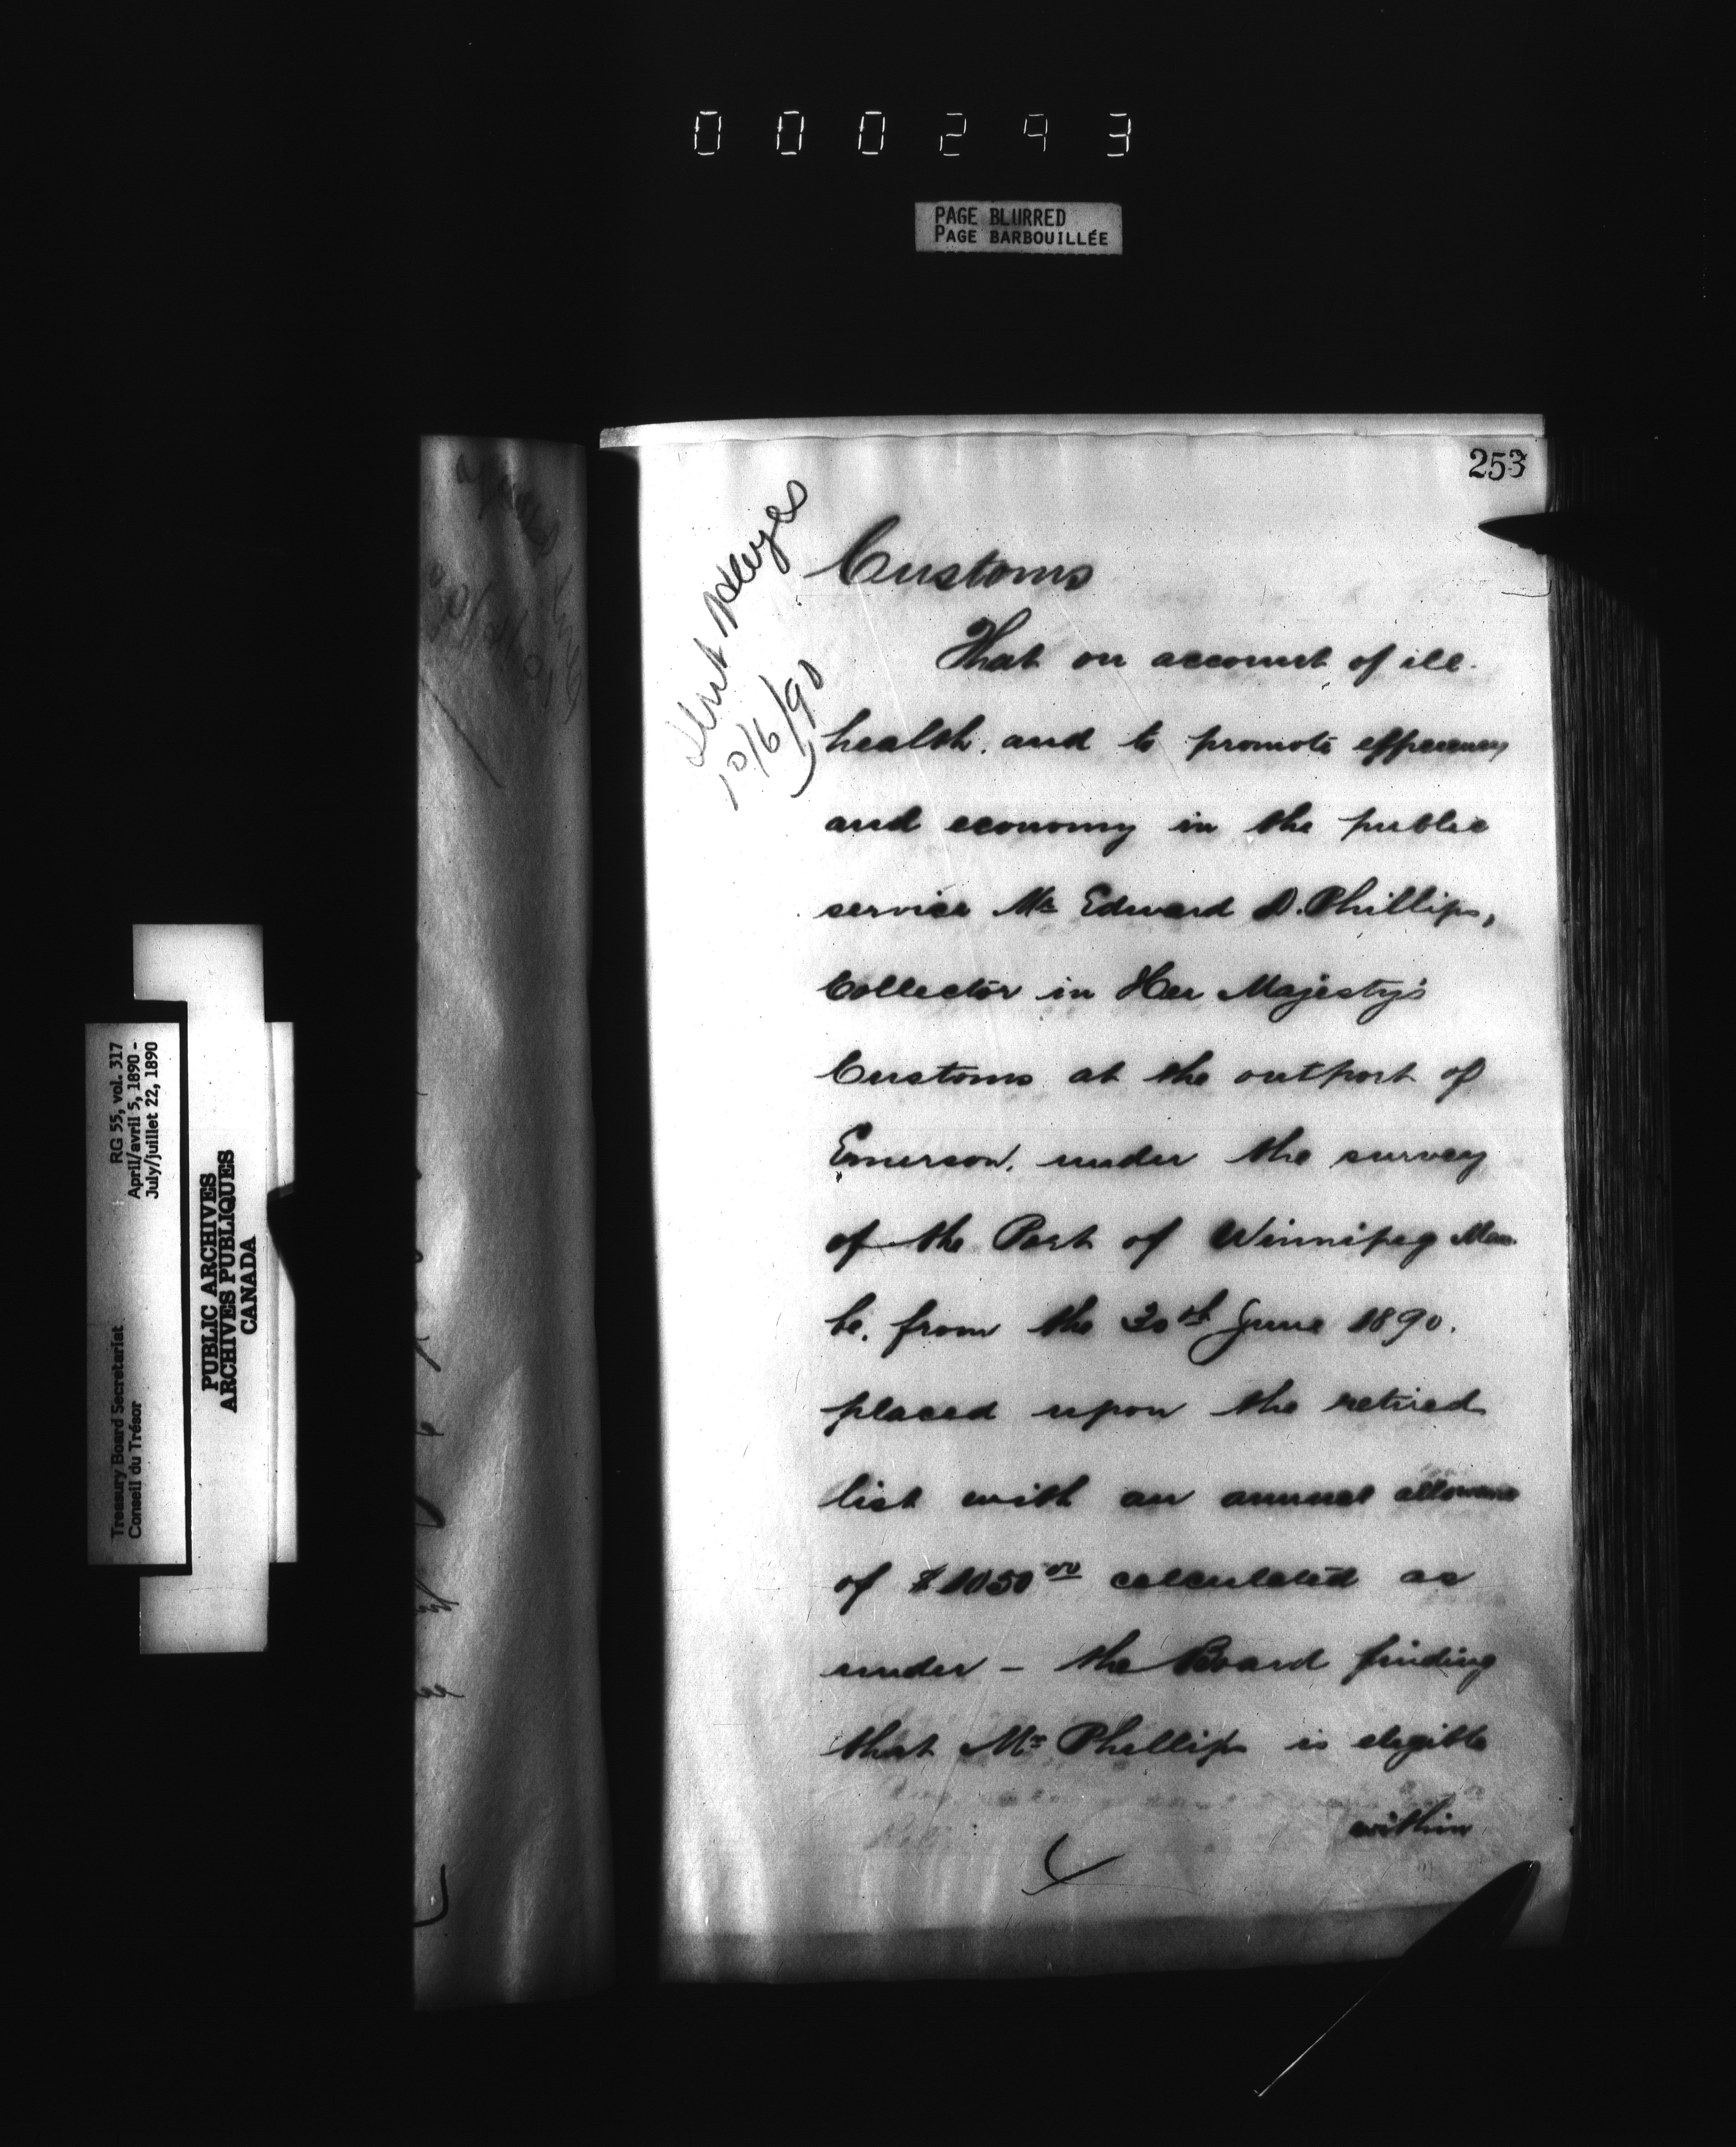 000293
PAGE BLURRED
PAGE BARBOUILLÉE
253
Sent
10/6/90
Customs
That on account of ill
health, and to promote efficiency
and economy in the public
service Mr Edward D. Phillips,
Collector in Her Majesty's
Customs at the outport of
Emerson, under the survey
of the Port of Winnipeg Man.
be, from the 30th June 1890.
placed upon the retired
list with an annual allowance
of $1050 00 calculated as
under - the Board finding
that Mr Phillips is elegible
within
RG 55, vol. 317
April/avril 5, 1890 -
July/juillet 22, 1890
Treasury Board Secretariat
Conseil du Trésor
PUBLIC ARCHIVES
ARCHIVES PUBLIQUES
CANADA